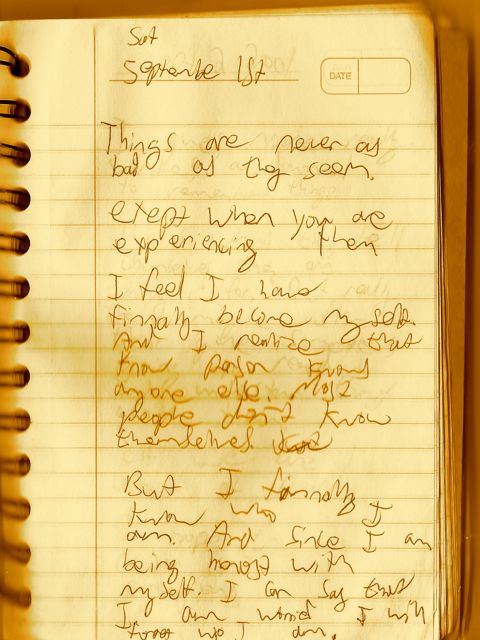 Sat
September 1st
DATE
Things are never as
bad as they seem.
exept when you are
experiencing them
I feel I have
finnally become myself.
And I realize that
know person knows
anyone else. Most
people don't know
themselves
But I finnally
know who I
am. And since I am
being honest with
myself I can say that
I am worried I will
forget who I am.